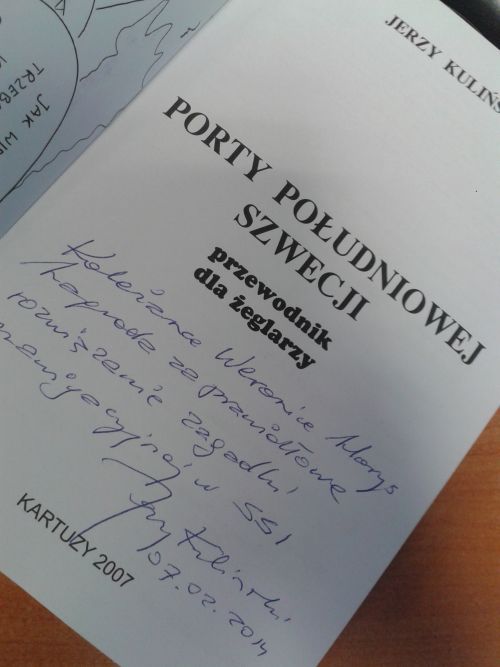 JAK WI
TRZEB
JERZY KULIŃS
PORTY POŁUDNIOWEJ
SZWECJI
przewodnik
dla żeglarzy
Koleżance Weronice Marys
nagroda za prawidłowe
rozwiązanie zagadki
nawigacyjnej w SSI
Jerzy Kuliński
07.02.2014
KARTUZY 2007